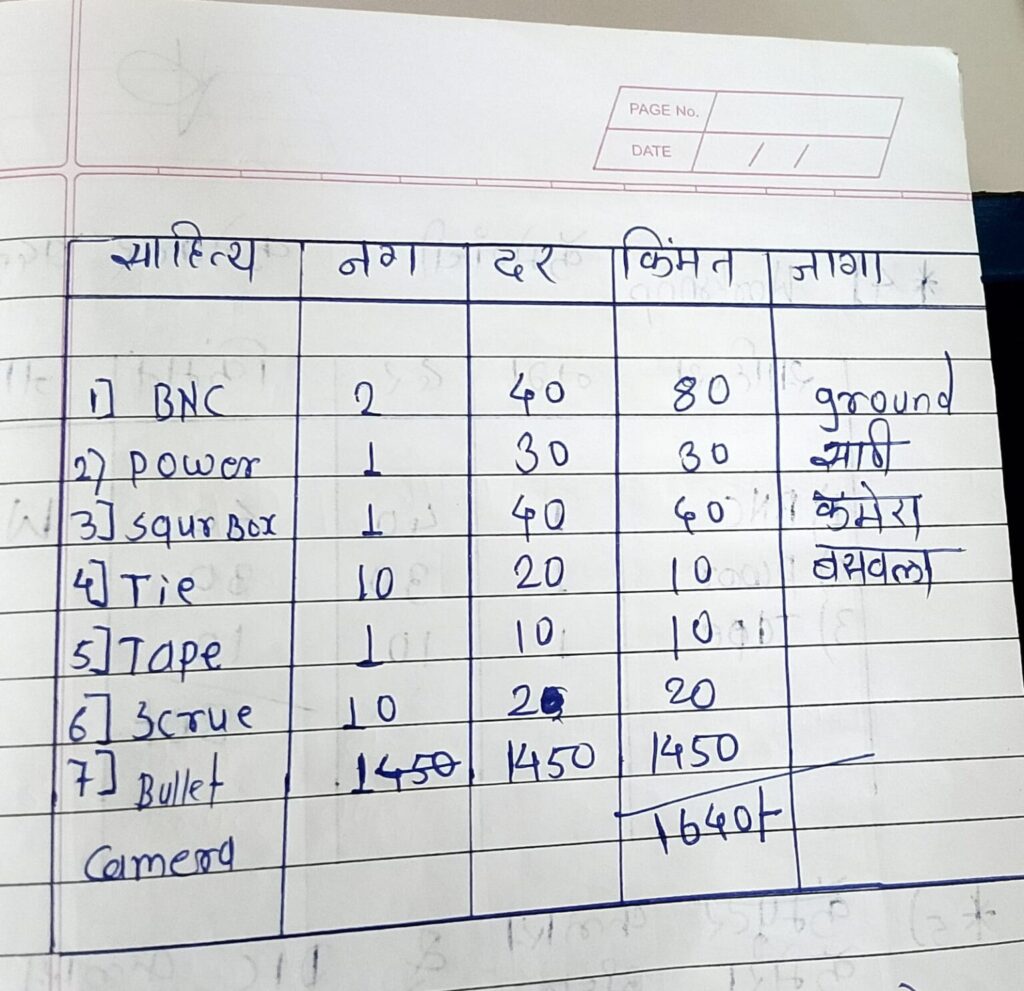 PAGE No.
DATE / /
साहित्य नग दर किंमत जागा
1] BNC 2 40 80 ground
2) power 1 30 30 साठी
3] squr Box 1 40 40 कॅमेरा
4] Tie 10 20 10 बसवला
5] Tape 1 10 10
6] Scrue 10 20 20
7] Bullet 1450 1450 1450
Camera 1640/-